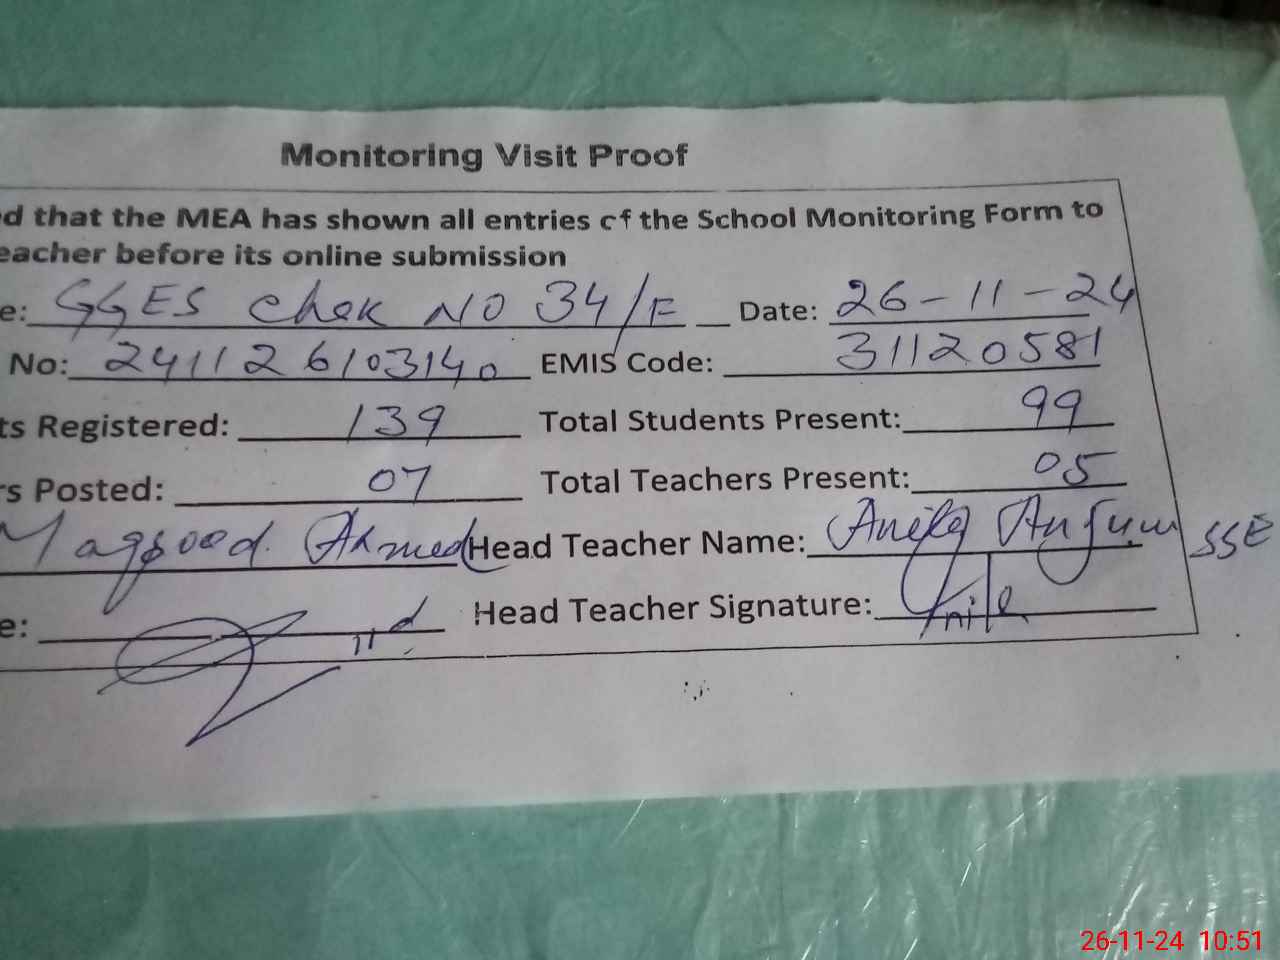 Monitoring Visit Proof
ed that the MEA has shown all entries of the School Monitoring Form to
eacher before its online submission
e: GGES Chak NO 34/F Date: 26-11-24
No: 241126103140 EMIS Code: 31120581
ts Registered: 139 Total Students Present: 99
rs Posted: 07 Total Teachers Present: 05
Maqsood Ahmed Head Teacher Name: Anila Anjum SSE
e: Head Teacher Signature: Anila
26-11-24 10:51